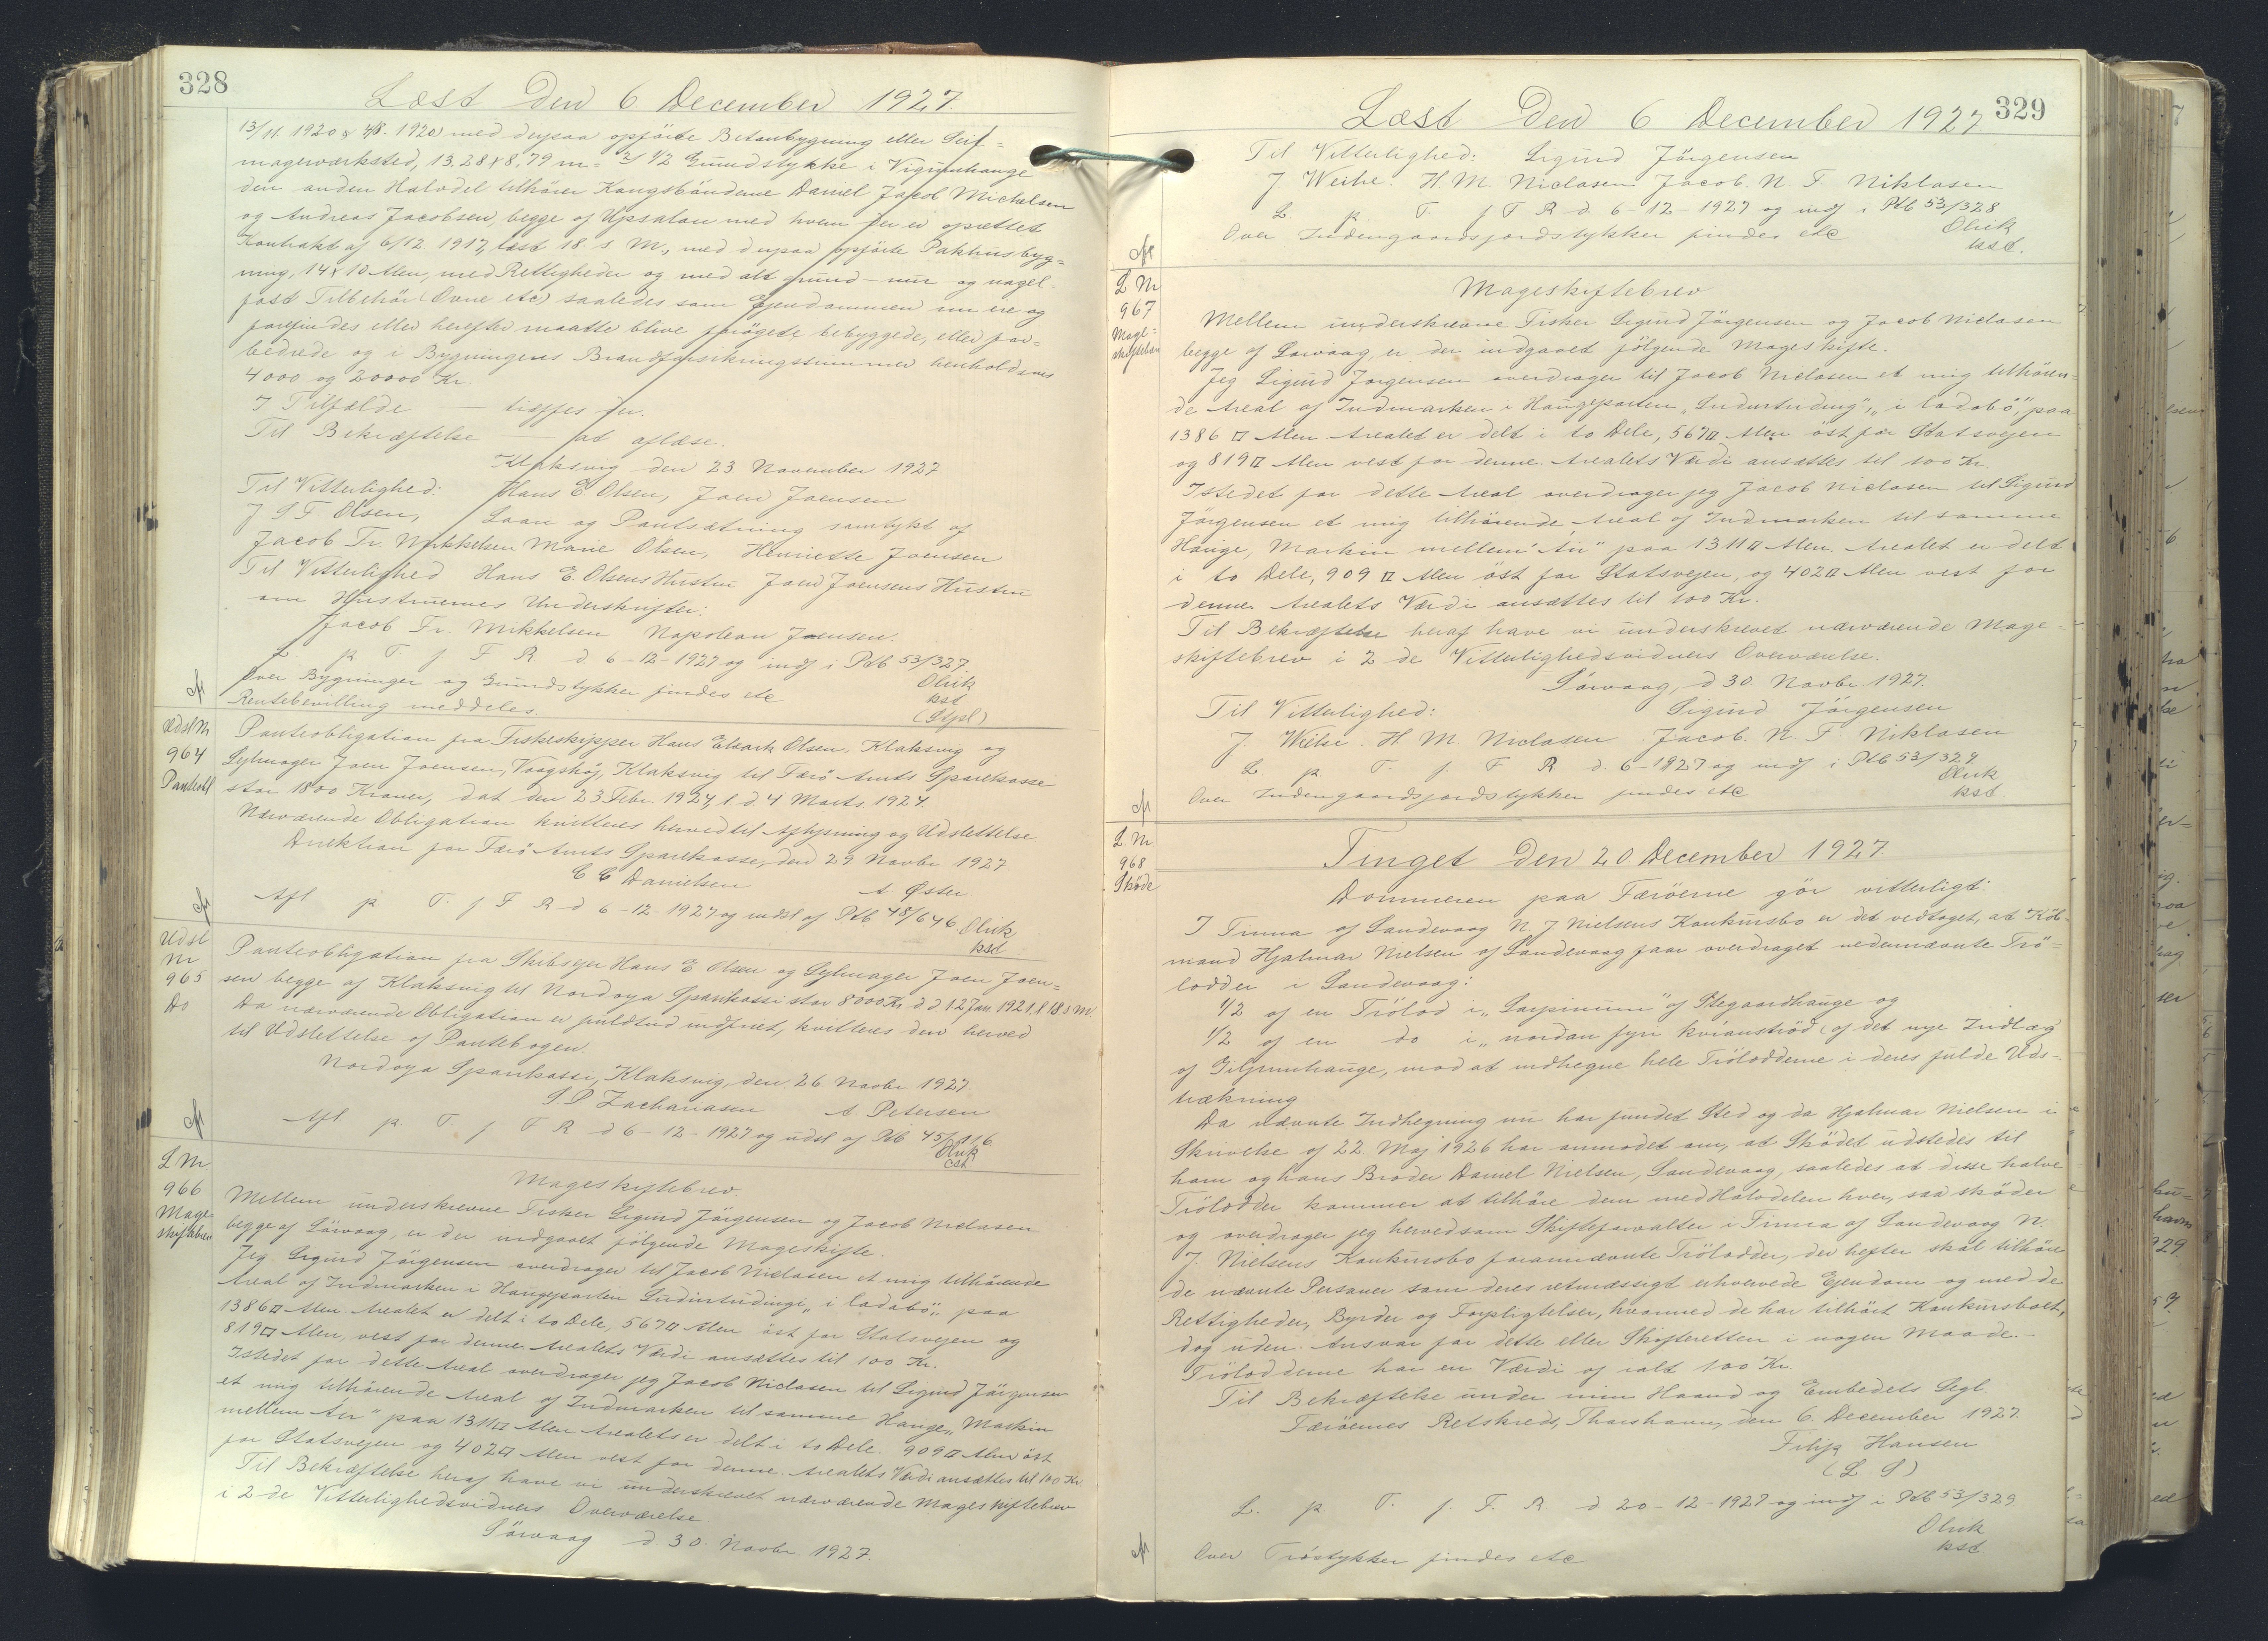 328
Læst Den 6. December 1927.
13/11 1920 & 4/8. 1920 med derpaa opførte Betonbygning eller Seil=
magerværksted, 13,28 x 8,79 m = 2/ 1/2 Grundstykke i Vigumhauge
den anden Halvdel tilhører Kongsbønderne Daniel Jacob Michelsen
og Andreas Jacobsen, begge af Upsalon med hvem der er oprettet
Kontrakt af 6/12 1917, læst 18. s. M., med derpaa opførte Pakhusbyg=
ning, 14 x 10 Alen, med Rettigheder og med alt grund- mur og nagel-
fast Tilbehør (Ovne etc) saaledes som Ejendommen nu ere og
forefindes eller herefter maatte blive forøgede bebyggede, eller for=
bedrede og i Bygningens Brandforsikringssummer henholdsvis
4000 og 20000 Kr.
I Tilfælde — tiltræffes jeg.
Til Bekræftelse — lad aflæse.
Klaksvig den 23 November 1927
Til Vitterlighed: Hans E Olsen, Joen Joensen
J S F Olsen, Laan og Pantsætning samtykt af
Jacob Fr. Mikkelsen Marie Olsen, Henriette Joensen
Til Vitterlighed Hans E. Olsens Hustru Joen Joensens Hustru
om Hustruernes Underskrifter:
Jacob Fr. Mikkelsen Napoleon Joensen.
L. p. T. f F R d. 6-12-1927 og indf i Ptb 53/327
Over Bygninger og Grundstykker findes etc Olrik
Rentebevilling meddeles. kst
(Stpl)
Udsl Nr
964
Panteobl
Panteobligation fra Fiskeskipper Hans Elivark Olsen, Klaksvig og
Sejlmager Joen Joensen, Vaagshøj, Klaksvig til Færø Amts Sparekasse
stor 1800 Kroner, dat den 23 Febr. 1924, l d 4 Marts 1924.
Nærværende Obligation kvitteres herved til Aflysning og Udslettelse
Direktion for Færø Amts Sparekasse, den 29 Novbr 1927
C C Danielsen A. Øster
Afl p T. f F R d 6-12-1927 og udsl af Ptb 48/646 Olrik
kst
Udsl
Nr
965
Do
Panteobligation fra Skibsejer Hans E Olsen og Sejlmager Joen Joen=
sen begge af Klaksvig til Nordoya Sparikassi stor 8000 Kr d. d 12 Jan 1921, l 18 s M
Da nærværende Obligation er fuldtud indfriet, kvitteres den herved
til Udslettelse af Pantebogen.
Nordoya Sparikassi, Klaksvig, den 26 Novbr 1927.
S P Zachariasen A. Petersen
Afl p T. f F R d 6-12-1927 og udsl af Ptb 45/116
Olrik
cst
L Nr
966
Mage
skiftebrev
Mageskiftebrev.
Mellem underskrevne Fisker Sigurd Jørgensen og Jacob Niclasen
begge af Sørvaag, er der indgaaet følgende Mageskifte.
Jeg Sigurd Jørgensen overdrager til Jacob Niclasen et mig tilhørende
Areal af Indmarken i Haugeparten Surdurtrudingi „i ladabø", paa
1386 □ Alen. Arealet er delt i to Dele, 567 □ Alen øst for Statsvejen og
819 □ Alen, vest for denne. Arealets Værdi ansættes til 100 Kr.
Istedet for dette Areal overdrager jeg Jacob Niclasen til Sigurd Jørgensen
et mig tilhørende Areal af Indmarken til samme Hauge „Markin
mellem Áir" paa 1311 □ Alen Arealets er delt i to Dele. 909 □ Alen øst
for Statsvejen og 402 □ Alen vest for denne. Arealets Værdi ansættes til 100 Kr.
Til Bekræftelse heraf have vi underskrevet nærværende Mageskiftebrev
i 2 de Vitterlighedsvidners Overværelse
Sørvaag d 30. Novbr. 1927.
329
Læst Den 6 December 1927
Til Vitterlighed: Sigurd Jørgensen
J Weihe. H. M. Niclasen Jacob. N. F. Niklasen
L. p. T. f F R d. 6-12-1927 og indf i Ptb 53/328
Over Indengaardsjordstykker findes etc Olrik
kst.
L Nr
967
Mage=
skiftebrev
Mageskiftebrev
Mellem underskrevne Fisker Sigurd Jørgensen og Jacob Niclasen
begge af Sørvaag, er der indgaaet følgende Mageskifte.
Jeg Sigurd Jørgensen overdrager til Jacob Niclasen et mig tilhøren=
de Areal af Indmarken i Haugeparten „Surdurtruding", „i ladabø", paa
1386 □ Alen. Arealet er delt i to Dele, 567 □ Alen øst for Statsvejen
og 819 □ Alen vest for denne. Arealets Værdi ansættes til 100 Kr.
Istedet for dette Areal overdrager jeg Jacob Niclasen til Sigurd
Jørgensen et mig tilhørende Areal af Indmarken til samme
Hauge, Markin mellem Áir" paa 1311 □ Alen. Arealet er delt
i to Dele, 909 □ Alen øst for Statsvejen, og 402 □ Alen vest for
denne. Arealets Værdi ansættes til 100 Kr.
Til Bekræftelse heraf have vi underskrevet nærværende Mage=
skiftebrev i 2 de Vitterlighedsvidners Overværelse.
Sørvaag, d 30 Novbr 1927.
Til Vitterlighed: Sigurd Jørgensen
J. Weihe. H. M. Niclasen. Jacob. N. F. Niklasen
L. p. T. f. F R d. 6-1927 og indf i Ptb 53/329.
Olrik
Over Indengaardsjordstykker findes etc kst.
L. Nr
968
Skøde
Tinget Den 20 December 1927
Dommeren paa Færøerne gør vitterligt:
I Firma af Sandevaag N. J Nielsens Konkursbo er det vedtaget, at Køb=
mand Hjalmar Nielsen af Sandevaag faar overdraget nedennævnte Trø=
lodder i Sandevaag:
1/2 af en Trølod i „Sarpinum" af Stegaardhauge og
1/2 af en do i „nordan fyri kvíanstrød (af det nye Indlæg
af Giljrumhauge, mod at indhegne hele Trølodderne i deres fulde Uds=
trækning
Da nævnte Indhegning nu har fundet Sted og da Hjalmar Nielsen i
Skrivelse af 22 Maj 1926 har anmodet om, at Skødet udstedes til
ham og hans Broder Daniel Nielsen, Sandevaag, saaledes at disse halve
Trølodder kommer at tilhøre dem med Halvdelen hver, saa skøder
og overdrager jeg herved som Skifteforvalter i Firma af Sandevaag N.
J. Nielsens Konkursbo forannævnte Trølodder, der hefter skal tilhøre
de nævnte Personer som deres retmæssigt erhvervede Ejendom og med de
Rettigheder, Byrder og Forpligtelser, hvormed de har tilhørt Konkursboet,
dog uden. Ansvar for dette eller Skifteretten i nogen Maade.-
Trølodderne har en Værdi af ialt 100 Kr.
Til Bekræftelse under min Haand og Embedets Segl.
Færøernes Retskreds, Thorshavn, den 6. December 1927.
Filip Hansen
(L S)
L. p. T. f. F. R d 20-12-1927 og indf i Ptb 53/329
Olrik
Over Trøstykker findes etc kst